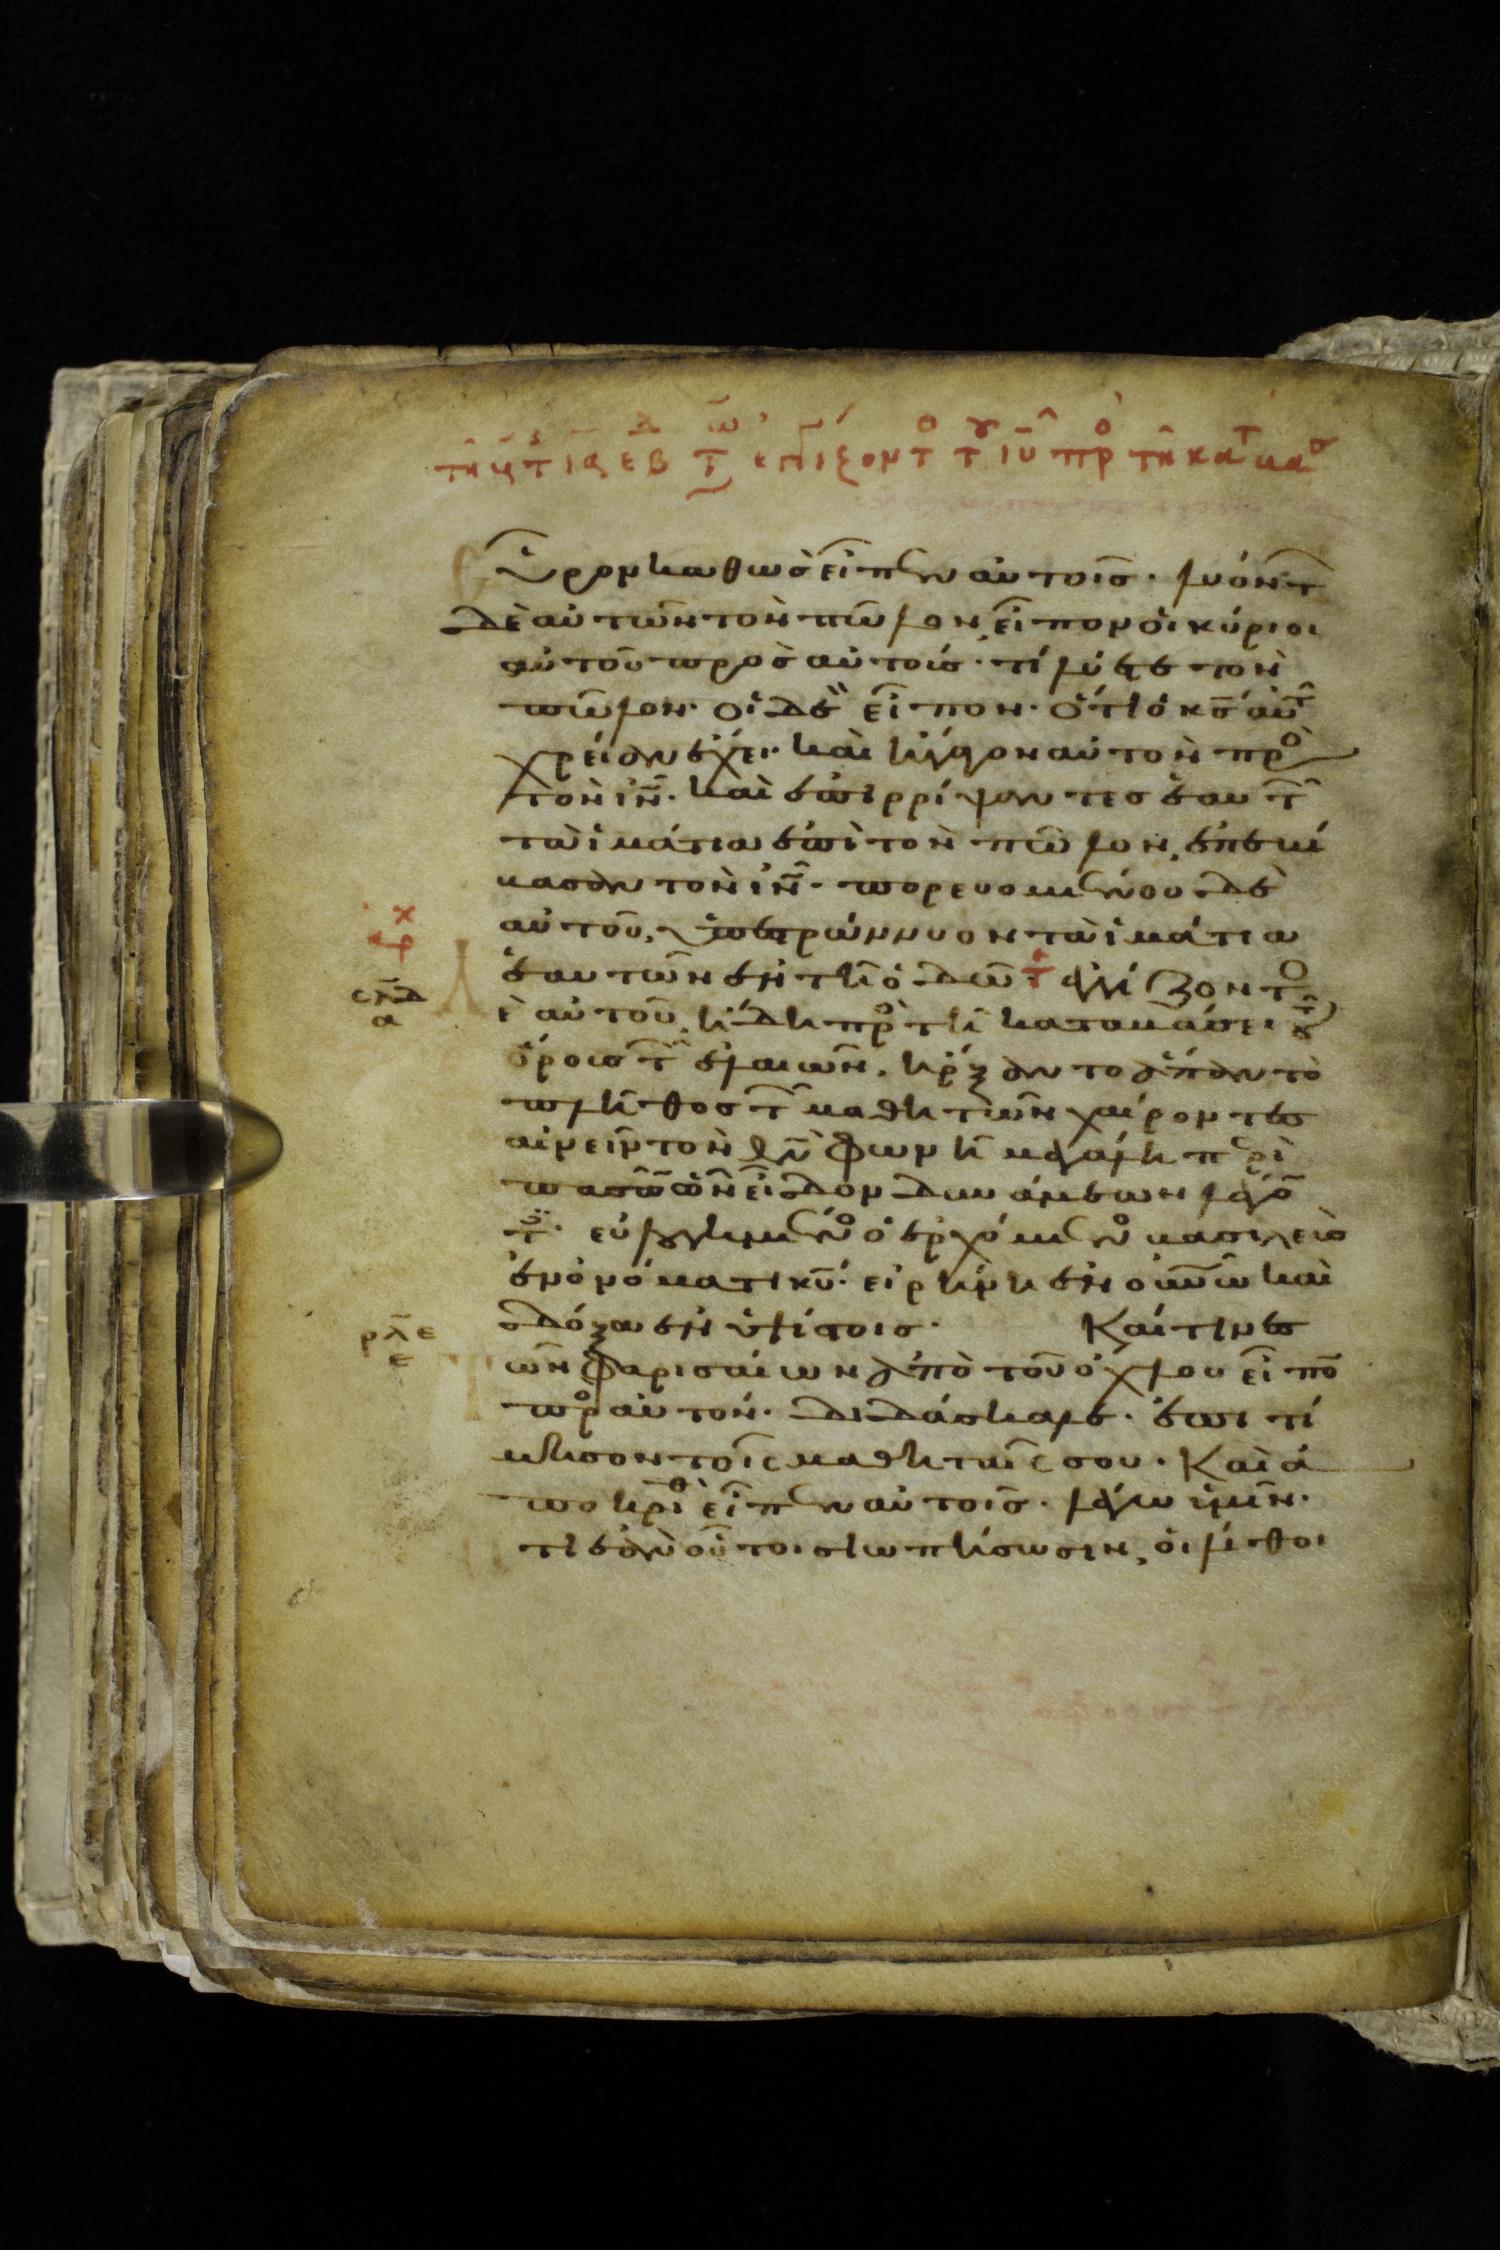 εὗρον καθὼς εἶπεν αὐτοῖς. λυόντ
δὲ αὐτῶν τὸν πῶλον εἶπον οἱ κύριοι
αὐτοῦ πρὸς αὐτούς. τί λύετε τὸν
πῶλον. οἱ δὲ εἶπον. ὅτι ὁ κς αὐτ
χρείαν ἔχει. καὶ ἤγαγον αὐτὸν πρ
τὸν ιν. καὶ ἐπιρρίψαντες ἑαυτ
τὰ ἱμάτια ἐπὶ τὸν πῶλον, ἐπεβί
βασαν τὸν ιν. πορευομένου δὲ
αὐτοῦ, ὑπεστρώννυον τὰ ἱμάτια
ἑαυτῶν ἐν τῆ ὁδῶ. ἐγγίζοντ
ὲ αὐτοῦ, ἤδη πρ τῆ καταβάσει τ
ὄρους τ ἐλαιῶν, ἤρξαντο ἅπαν τὸ
πλῆθος τ μαθητῶν χαίροντες
αἰνεῖν τὸν θν φωνῆ μεγάλη περὶ
πασῶν ὧν εἶδον δυνάμεων λέγο
τ. εὐλογημένο ὁ ἐρχόμενο βασιλεὺς
ἐν ὀνόματι κυ. εἰρήνη ἐν ουνω καὶ
δόξα ἐν ὑψίστοις. Καί τινες
ῶν φαρισαίων ἀπὸ τοῦ ὄχλου εἶπο
πρ αὐτόν. διδάσκαλε. ἐπιτί
μησον τοῖς μαθηταῖς σου. Καὶ ἀ
ποκριθ εἶπεν αὐτοῖς. λέγω ὑμῖν.
τι ἐὰν οὗτοι σιωπήσωσιν, οἱ λίθοι